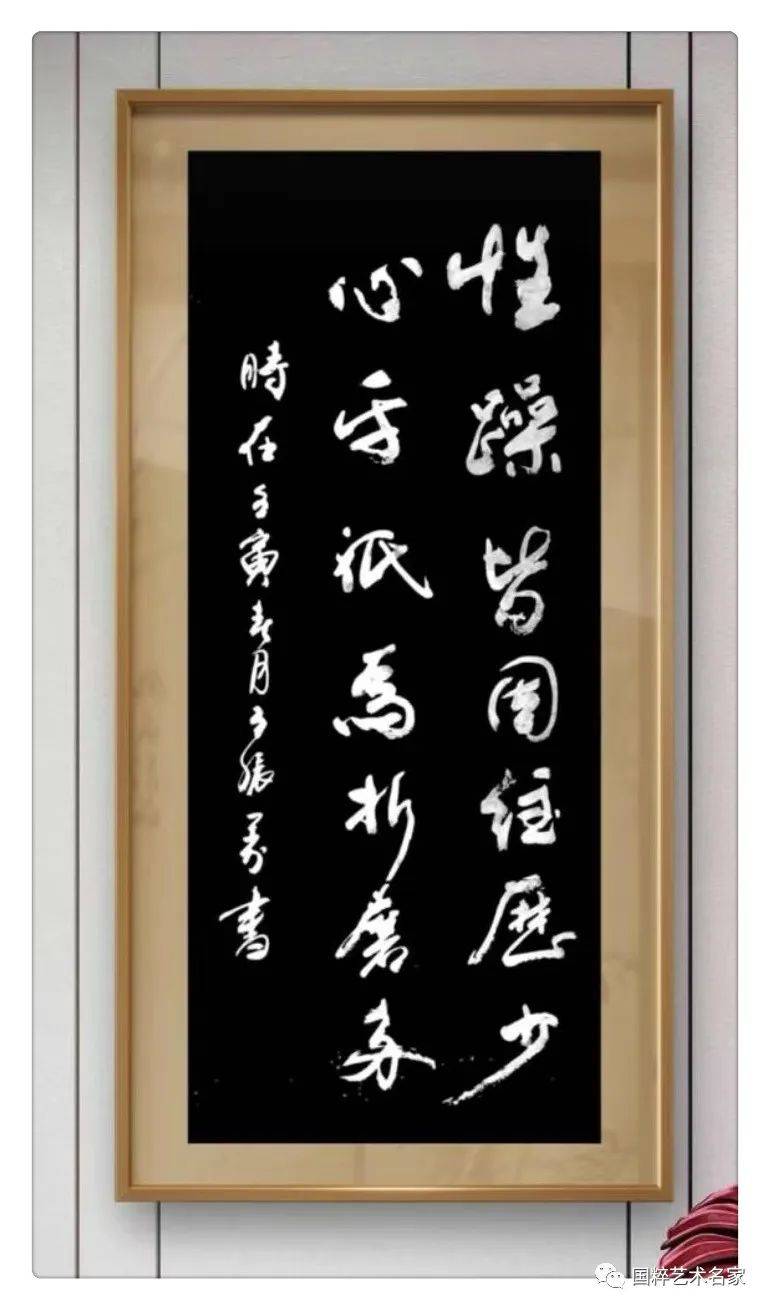 性躁皆因經歷少
心平祇為折磨多
時在壬寅春月振書
国粹艺术名家